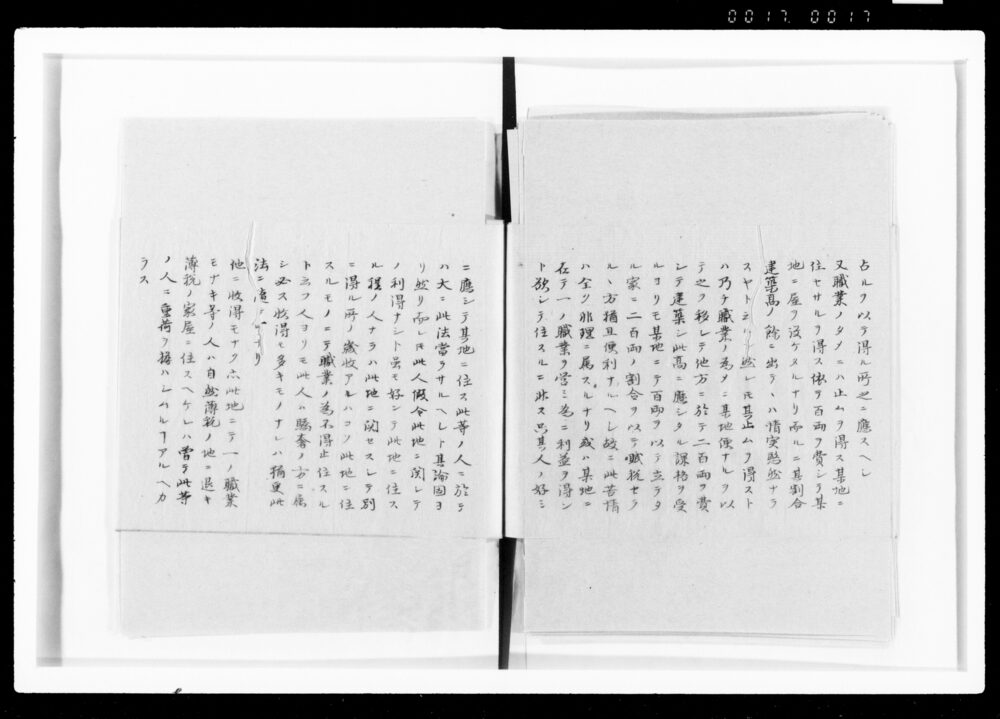 0017 0017
占ルヲ以テ得ル所之ニ應スヘレ
又職業ノタメニハ止ムヲ得ス某地ニ
住セサルヲ得ス依テ百両ヲ費シテ某
地ニ屋ヲ設ケタルナリ而ルニ其割合
建築高ノ餘ニ出テハ情実愍然ナラ
スヤト 然レモ其止ムヲ得スト
ハ乃チ職業ノ為メニ某地便ナルヲ以
テ之ヲ移レテ他方ニ於テ二百両ヲ費
シテ建築シ此高ニ應シタル課格ヲ受
ルヨリモ某地ニテ百両ヲ以テ立テタ
ル家ニ二百両ノ割合ヲ以テ賦税セラ
ルヽ方猶且便利ナルヘシ故ニ此苦情
ハ全ク非理ニ属スルナリ或ハ某地ニ
在テ一ノ職業ヲ営ミ為ニ利益ヲ得ン
ト欲シテ住スルニ非ス只其人ノ好ミ
ニ應シテ某地ニ住ス此等ノ人ニ於テ
ハ大ニ此法當ラサルヘレト其論固ヨ
リ然リ而レモ此人假令此地ニ関レテ
ノ利得ナシト虽モ好ンテ此地ニ住ス
ル程ノ人ナラハ此地ニ関セスレテ別
ニ得ル所ノ歳收アルハコノ此地ニ住
スルモノニテ職業ノ為不得止住スル
ト云フ人ヨリモ此人ハ驕奢ノ方ニ属
シ必ス收得モ多キモノナレハ猶更此
法ニ
地ニ收得モナク亦此地ニテ一ノ職業
モナキ等ノ人ハ自然薄税ノ地ニ退キ
薄税ノ家屋ニ住スヘケレハ曽テ此等
ノ人ニ重荷ヲ擔ハシムルヿアルヘカ
ラス